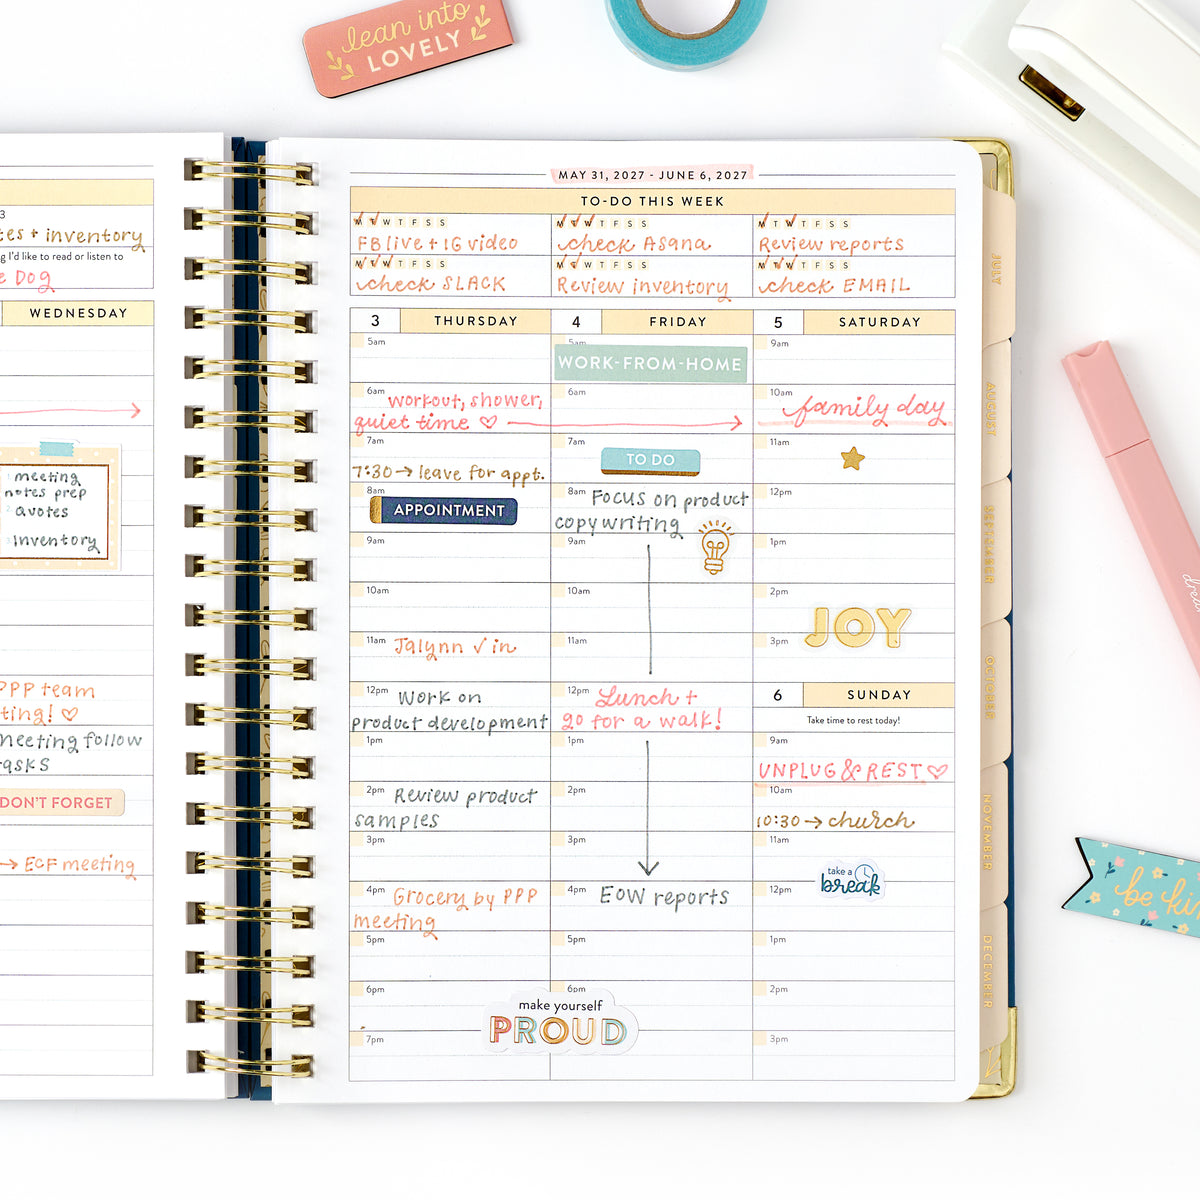 lean into
LOVELY
3
tes + inventory
g I'd like to read or listen to
e Dog
WEDNESDAY
meeting
notes prep
quotes
inventory
PPP team
ting! ♡
meeting follow
asks
DON'T FORGET
→ ECF meeting
MAY 31, 2027 - JUNE 6, 2027
TO-DO THIS WEEK
M T W T F S S
FB live + IG video
M T W T F S S
check Asana
M T W T F S S
Review reports
M T W T F S S
check SLACK
M T W T F S S
Review inventory
M T W T F S S
check EMAIL
3 THURSDAY
5am
6am workout, shower,
quiet time ♡
7am
7:30 → leave for appt.
8am
APPOINTMENT
9am
10am
11am Jalynn ✓ in
12pm Work on
product development
1pm
2pm Review product
samples
3pm
4pm Grocery by PPP
meeting
5pm
6pm
7pm
4 FRIDAY
5am
WORK-FROM-HOME
6am
7am
TO DO
8am Focus on product
copywriting
9am
10am
11am
12pm Lunch +
go for a walk!
1pm
2pm
3pm
4pm EOW reports
5pm
6pm
make yourself
PROUD
5 SATURDAY
9am
10am family day
11am
12pm
1pm
2pm
JOY
3pm
6 SUNDAY
Take time to rest today!
9am
UNPLUG & REST ♡
10am
10:30 → church
11am
take a
break
12pm
1pm
2pm
3pm
JULY
AUGUST
SEPTEMBER
OCTOBER
NOVEMBER
DECEMBER
be kin